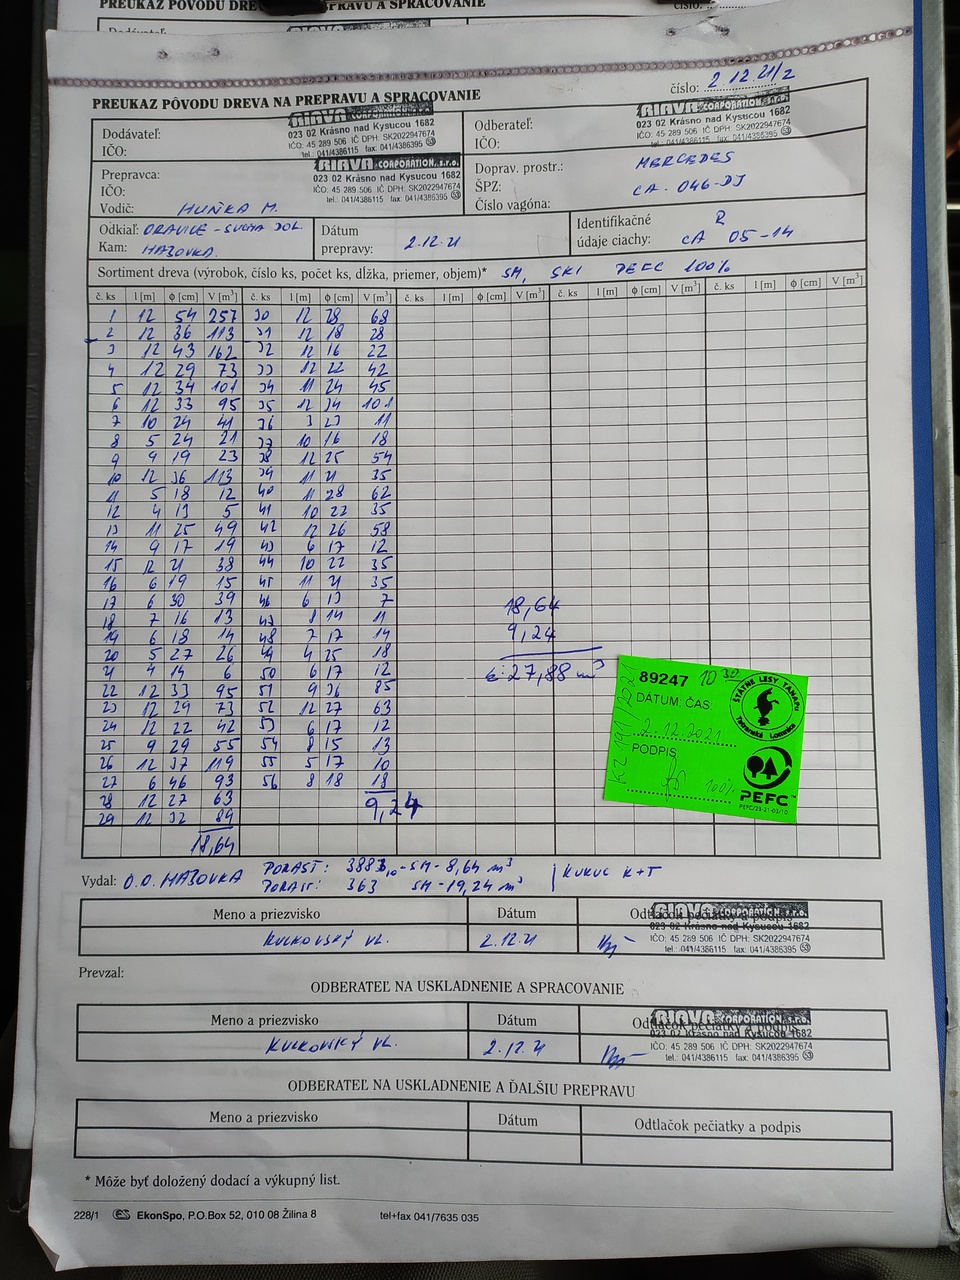 PREUKAZ PÔVODU DREVA NA PREPRAVU A SPRACOVANIE
číslo:
PREUKAZ PÔVODU DREVA NA PREPRAVU A SPRACOVANIE
číslo: 2.12.21/2
Dodávateľ:
IČO:
RIAVA CORPORATION, s.r.o.
023 02 Krásno nad Kysucou 1682
IČO: 45 289 506 IČ DPH: SK2022947674
tel.: 041/4386115 fax: 041/4386395 53
Odberateľ:
IČO:
RIAVA CORPORATION, s.r.o.
023 02 Krásno nad Kysucou 1682
IČO: 45 289 506 IČ DPH: SK2022947674
tel.: 041/4386115 fax: 041/4386395 53
Prepravca:
IČO:
Vodič: HUŇKA M.
RIAVA CORPORATION, s.r.o.
023 02 Krásno nad Kysucou 1682
IČO: 45 289 506 IČ DPH: SK2022947674
tel.: 041/4386115 fax: 041/4386395 53
Doprav. prostr.: MERCEDES
ŠPZ: CA-046-DJ
Číslo vagóna:
Odkiaľ: ORAVICE - SUCHA DOL.
Kam: HAZOVKA
Dátum
prepravy: 2.12.21
Identifikačné R
údaje ciachy: CA 05-14
Sortiment dreva (výrobok, číslo ks, počet ks, dĺžka, priemer, objem)* SM, SKI PEFC 100%
č. ks l [m] ϕ [cm] V [m³] č. ks l [m] ϕ [cm] V [m³] č. ks l [m] ϕ [cm] V [m³] č. ks l [m] ϕ [cm] V [m³] č. ks l [m] ϕ [cm] V [m³]
1 12 54 257 30 12 28 68
2 12 36 113 31 12 18 28
3 12 43 162 32 12 16 22
4 12 29 73 33 12 22 42
5 12 34 101 34 11 24 45
6 12 33 95 35 12 34 101
7 10 24 41 36 3 23 11
8 5 24 21 37 10 16 18
9 9 19 23 38 12 25 54
10 12 36 113 39 11 21 35
11 5 18 12 40 11 28 62
12 4 13 5 41 10 22 35
13 11 25 49 42 12 26 58
14 9 17 19 43 6 17 12
15 12 21 38 44 10 22 35
16 6 19 15 45 11 21 35
17 6 30 39 46 6 13 7
18 7 16 13 47 8 14 11
19 6 18 14 48 7 17 14
20 5 27 26 49 4 25 18
21 4 14 6 50 6 17 12
22 12 33 95 51 9 36 85
23 12 29 73 52 12 27 63
24 12 22 42 53 6 17 12
25 9 29 55 54 8 15 13
26 12 37 119 55 5 17 10
27 6 46 93 56 8 18 18
28 12 27 63 9,24
29 12 32 89
18,64
18,64
9,24
27,88 m³
89247 10 30
DÁTUM, ČAS
2.12.2021
PODPIS
100%
ŠTÁTNE LESY TANAPu
Tatranská Lomnica
PEFC™
PEFC/23-21-03/10
Vydal: O.O. HAZOVKA
PORAST: 3883,0 - SM - 8,64 m³
PORAST: 363 SM - 19,24 m³
KUKUC K+T
Meno a priezvisko Dátum Odtlačok pečiatky a podpis
KULKOVSKÝ VL. 2.12.21
RIAVA CORPORATION, s.r.o.
023 02 Krásno nad Kysucou 1682
IČO: 45 289 506 IČ DPH: SK2022947674
tel.: 041/4386115 fax: 041/4386395 53
Prevzal:
ODBERATEĽ NA USKLADNENIE A SPRACOVANIE
Meno a priezvisko Dátum Odtlačok pečiatky a podpis
KULKOVSKÝ VL. 2.12.21
RIAVA CORPORATION, s.r.o.
023 02 Krásno nad Kysucou 1682
IČO: 45 289 506 IČ DPH: SK2022947674
tel.: 041/4386115 fax: 041/4386395 53
ODBERATEĽ NA USKLADNENIE A ĎALŠIU PREPRAVU
Meno a priezvisko Dátum Odtlačok pečiatky a podpis
* Môže byť doložený dodací a výkupný list.
228/1 EkonSpo, P.O.Box 52, 010 08 Žilina 8 tel+fax 041/7635 035